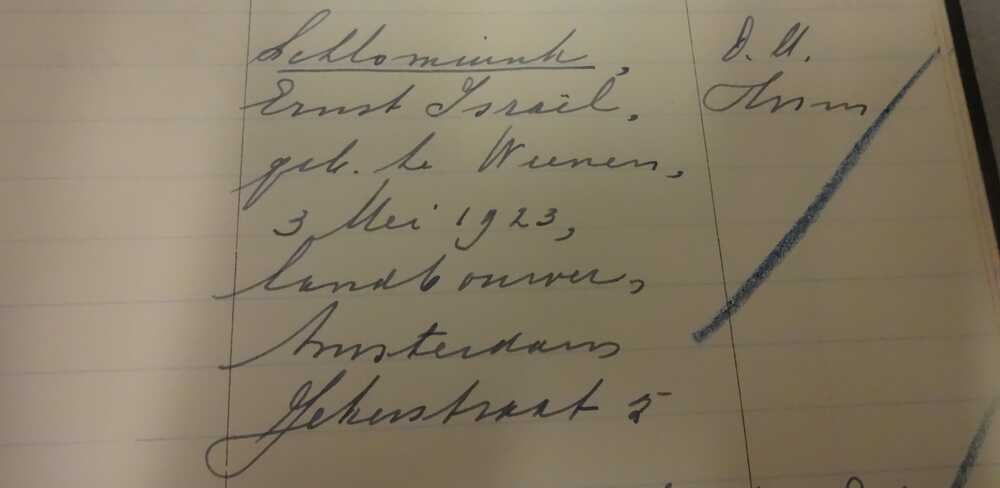 Schlomiuk, D. U.
Ernst Israël,
geb. te Weenen,
3 Mei 1923,
landbouwer,
Amsterdam
Jekerstraat 5